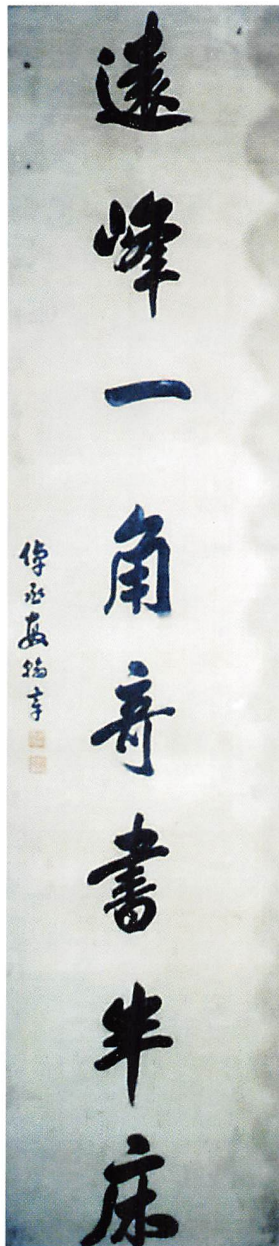 遠峰一角奇書半床
翰章